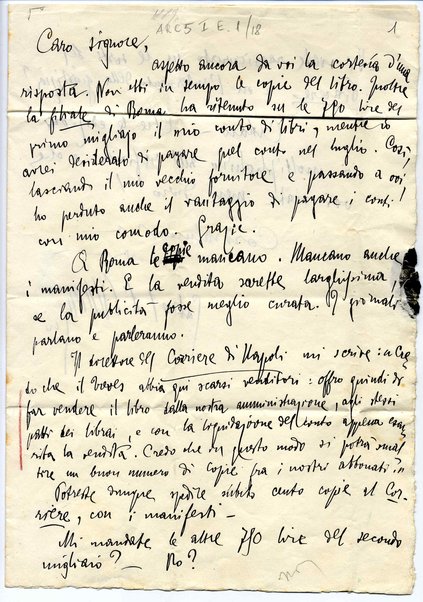 ARC 5 I E. 1/18
1
Caro signore,
aspetto ancora da voi la cortesia d'una
risposta. Non ebbi in tempo le copie del libro. Inoltre
la filiale di Roma ha ritenuto su le 750 lire del
primo migliajo il mio conto di libri, mentre io
avrei desiderato di pagare quel conto nel luglio. Così,
lasciando il mio vecchio fornitore e passando a voi,
ho perduto anche il vantaggio di pagare i conti
con mio comodo. Grazie.
A Roma le copie mancano. Mancano anche
i manifesti. E la vendita sarebbe larghissima
se la pubblicità fosse meglio curata. I giornali
parlano e parleranno.
Il direttore del Corriere di Napoli mi scrive: "Cre-
do che il Treves abbia qui scarsi venditori: offro quindi di
far vendere il libro dalla nostra amministrazione, agli stessi
patti dei librai, e con la liquidazione del conto appena esau-
rita la vendita. Credo che in questo modo si potrà smal-
tire un buon numero di copie fra i nostri abbonati."
Potreste dunque spedire subito cento copie al Cor-
riere, con i manifesti –
Mi mandate le altre 750 lire del secondo
migliaio? – No?